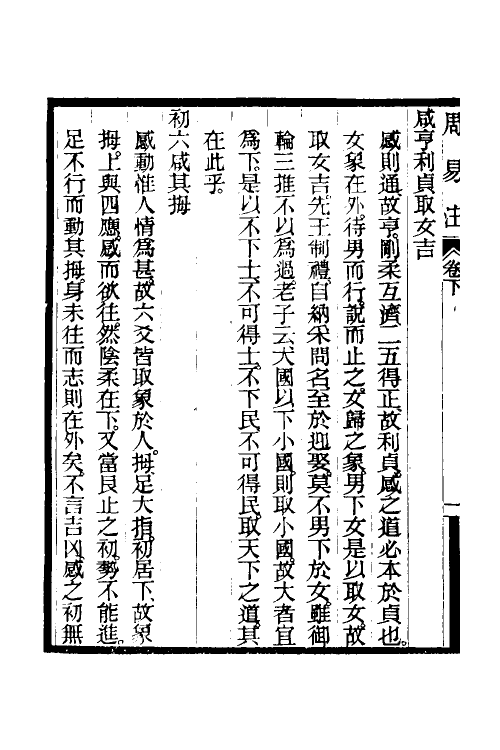 周易注 卷下 一
咸亨利貞取女吉
感則通故亨剛柔互濟二五得正故利貞感之道必本於貞也
女象在外待男而行說而止之女歸之象男下女是以取女故
取女吉先王制禮自納采問名至於迎娶莫不男下於女雖御
輪三推不以為過老子云大國以下小國則取小國故大者宜
為下是以不下士不可得士不下民不可得民取天下之道其
在此乎
初六咸其拇
感動惟人情為甚故六爻皆取象於人拇足大指初居下故象
拇上與四應感而欲往然陰柔在下又當艮止之初勢不能進
足不行而動其拇身未往而志則在外矣不言吉凶感之初無